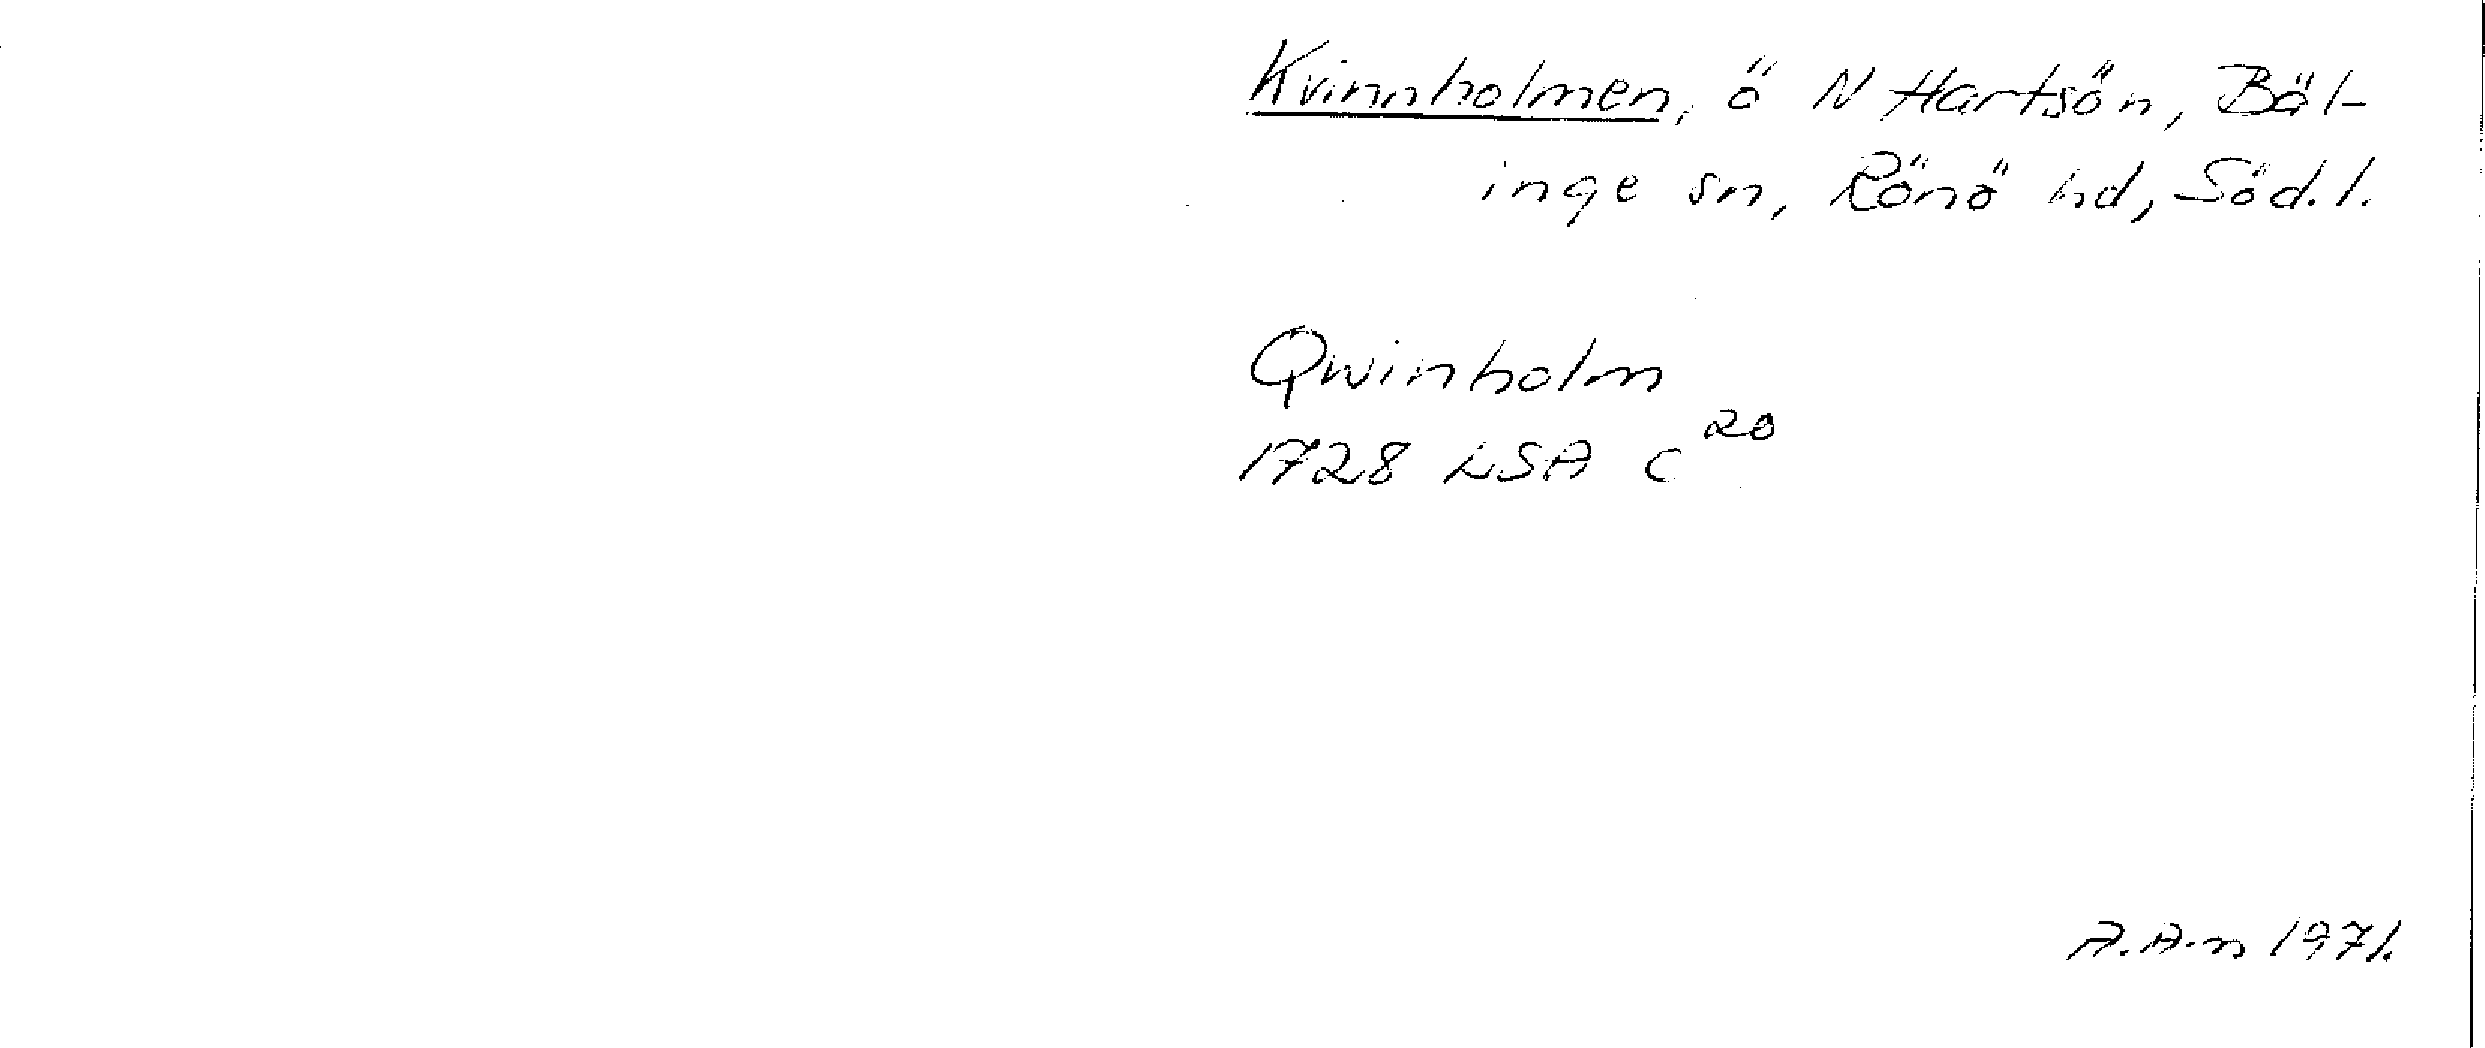 Kvinnholmen, ö N Hartsön, Bäl-
inge sn, Rönö hd, Söd.l.
Qwinholm
1728 LSA C 20
A.A-n 1971.